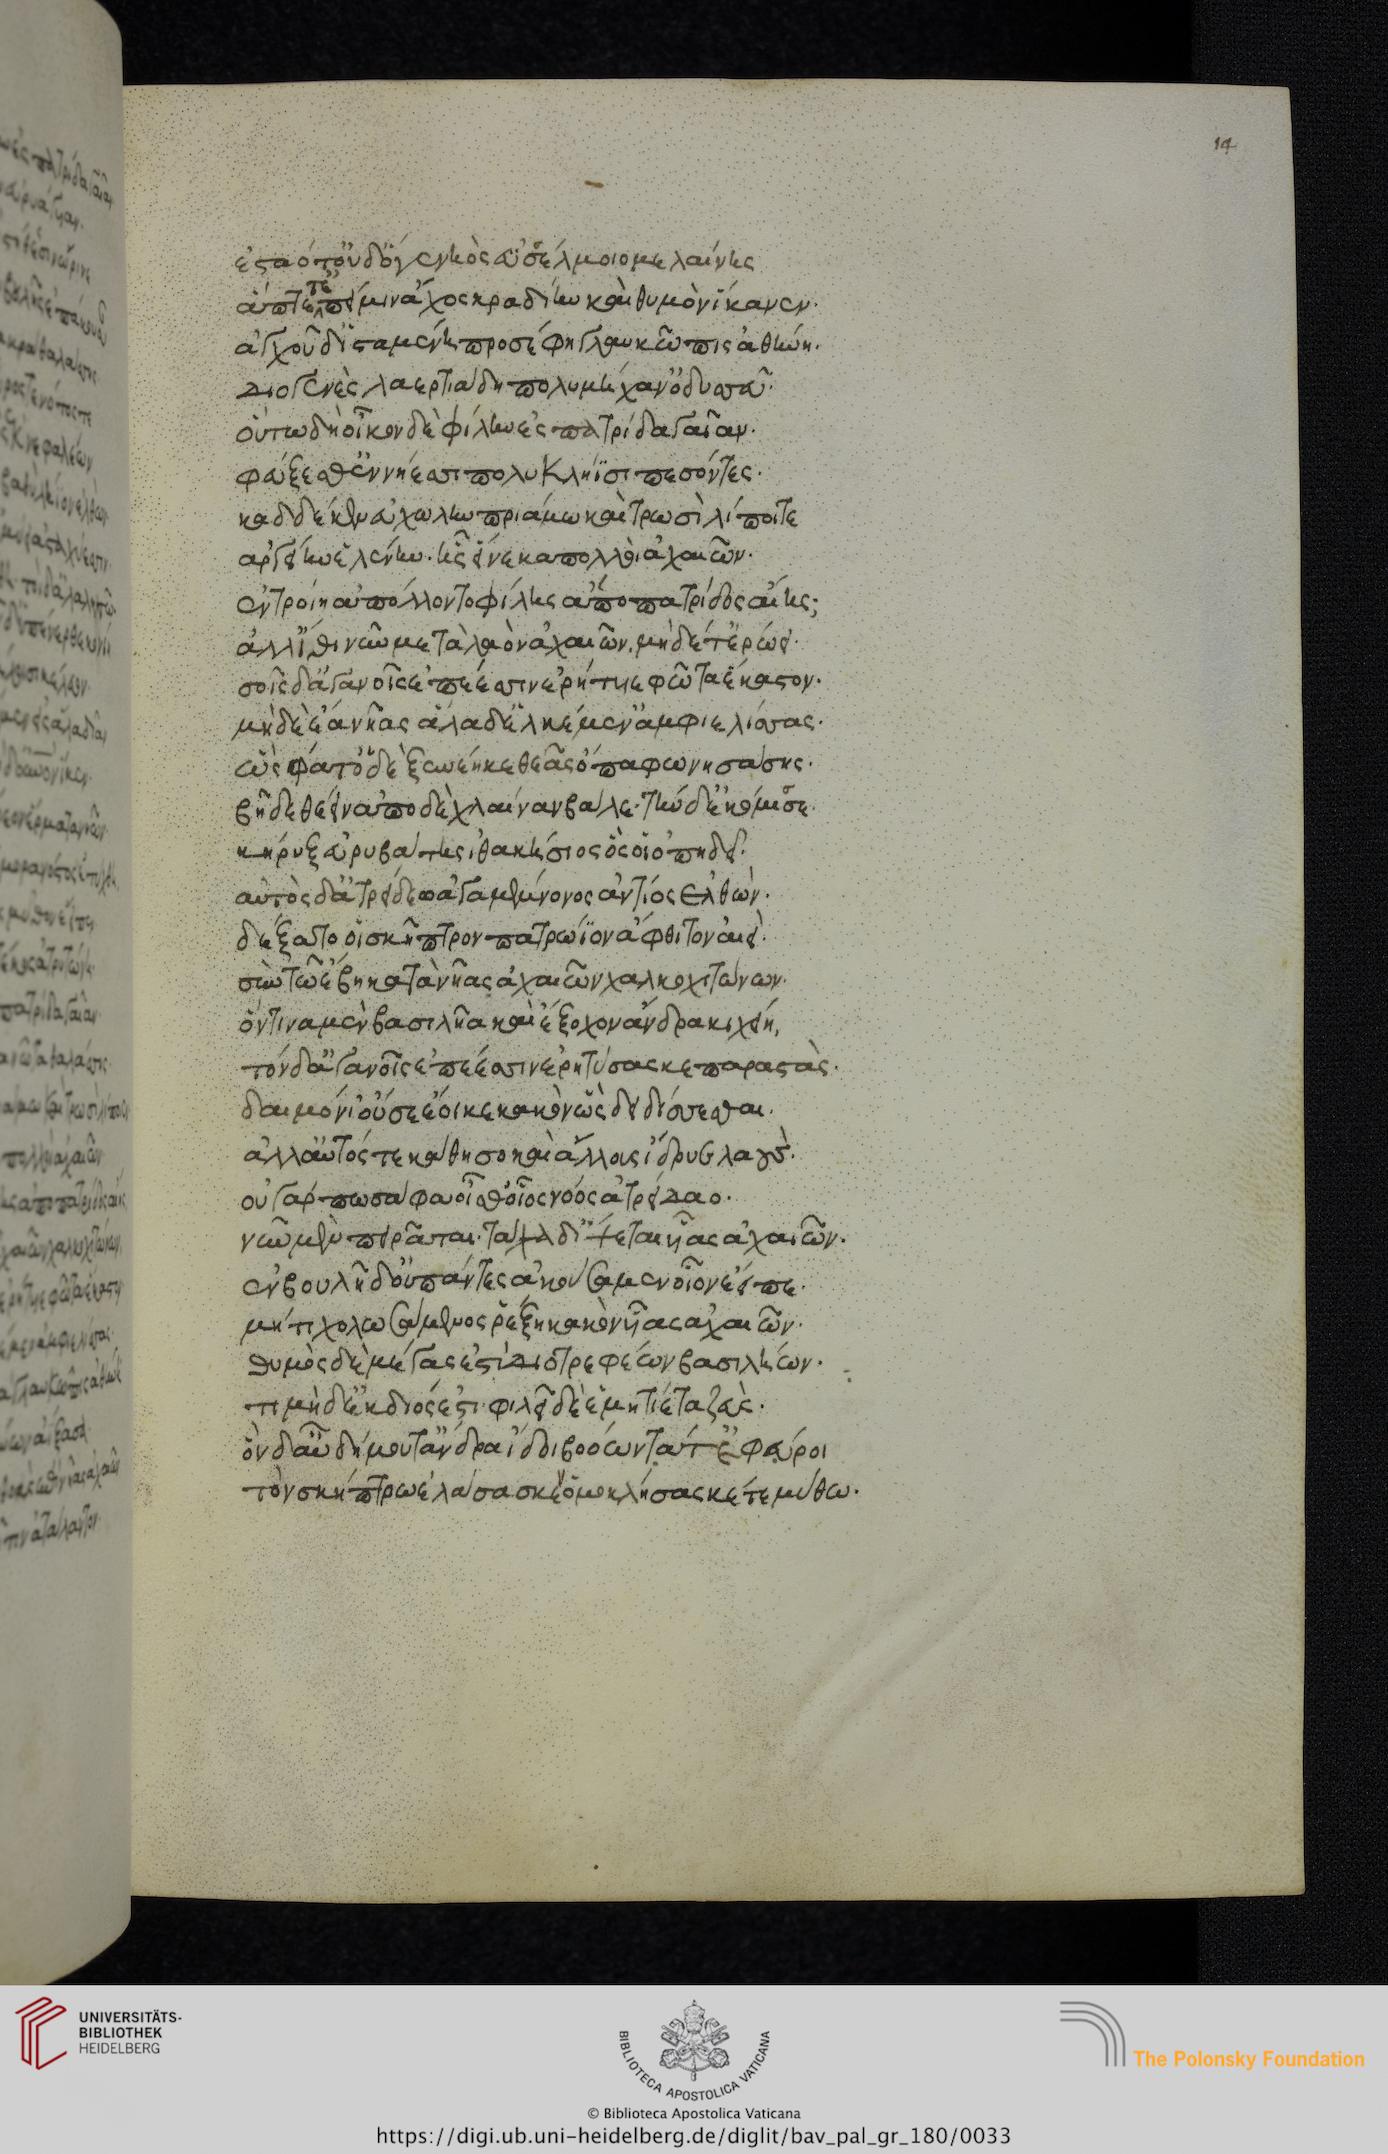 ἑσταότ' οὐδ' ὅγε νηὸς ἐϋσέλμοιο μελαίνης
ἅπτετ' ἐπεί μιν ἄχος κραδίην καὶ θυμὸν ἵκανεν·
ἀγχοῦ δ' ἱσταμένη προσέφη γλαυκῶπις ἀθήνη·
διογενὲς λαερτιάδη πολυμήχαν' ὀδυσσεῦ·
οὕτω δὴ οἶκον δὲ φίλην ἐς πατρίδα γαῖαν·
φεύξεσθ' ἐν νήεσσι πολυκλήϊσι πεσόντες·
καδδέ κεν εὐχωλὴν πριάμω καὶ τρωσὶ λίποιτε
ἀργείην ἑλένην· ἧς εἵνεκα πολλοὶ ἀχαιῶν·
ἐν τροίη ἀπόλλοντο φίλης ἀπὸ πατρίδος αἴης;
ἀλλ' ἴθι νῦν μετὰ λαὸν ἀχαιῶν, μὴ δέ τ' ἐρώει·
σοῖς δ' ἀγανοῖς ἐπέεσσιν ἐρήτυε φῶτα ἕκαστον·
μὴ δὲ ἔα νῆας ἅλαδ' ἑλκέμεν ἀμφιελίσσας·
ὣς φάτ' ὃ δὲ ξυνέηκε θεᾶς ὄπα φωνησάσης·
βῆ δὲ θέειν ἀπὸ δὲ χλαίναν βάλε· τὴν δ' ἐκόμισσε·
κήρυξ εὐρυβάτης ἰθακήσιος ὅς οἱ ὀπήδει·
αὐτὸς δ' ἀτρείδεω ἀγαμέμνονος ἀντίος ἐλθών·
δέξατο οἱ σκῆπτρον πατρώϊον ἄφθιτον αἰεί·
σὺν τῶ ἔβη κατὰ νῆας ἀχαιῶν χαλκοχιτώνων·
ὅντινα μὲν βασιλῆα καὶ ἔξοχον ἄνδρα κιχείη,
τόνδ' ἀγανοῖς ἐπέεσσιν ἐρητύσασκε παραστάς·
δαιμόνι' οὔ σε ἔοικε κακὸν ὣς δειδίσσεσθαι·
ἀλλ' αὐτός τε κάθησο καὶ ἄλλους ἵδρυε λαούς·
οὐ γάρ πω σάφα οἶσθ' οἷος νόος ἀτρείδαο·
νῦν μὲν πειρᾶται· τάχα δ' ἴψεται υἷας ἀχαιῶν·
ἐν βουλῆ δ' οὐ πάντες ἀκούσαμεν οἷον ἔειπε·
μή τι χολωσάμενος ῥέξη κακὸν υἷας ἀχαιῶν·
θυμὸς δὲ μέγας ἐστὶ διοτρεφέων βασιλήων·
τιμὴ δ' ἐκ διός ἐστι· φιλεῖ δὲ ἑ μητίετα ζεύς·
ὃν δ' αὖ δήμου τ' ἄνδρα ἴδοι βοόωντά τ' ἐφεύροι
τὸν σκήπτρω ἐλάσασκεν ὁμοκλήσασκέ τε μύθω·
14
UNIVERSITÄTS-
BIBLIOTHEK
HEIDELBERG
BIBLIOTECA APOSTOLICA VATICANA
© Biblioteca Apostolica Vaticana
The Polonsky Foundation
https://digi.ub.uni-heidelberg.de/diglit/bav_pal_gr_180/0033